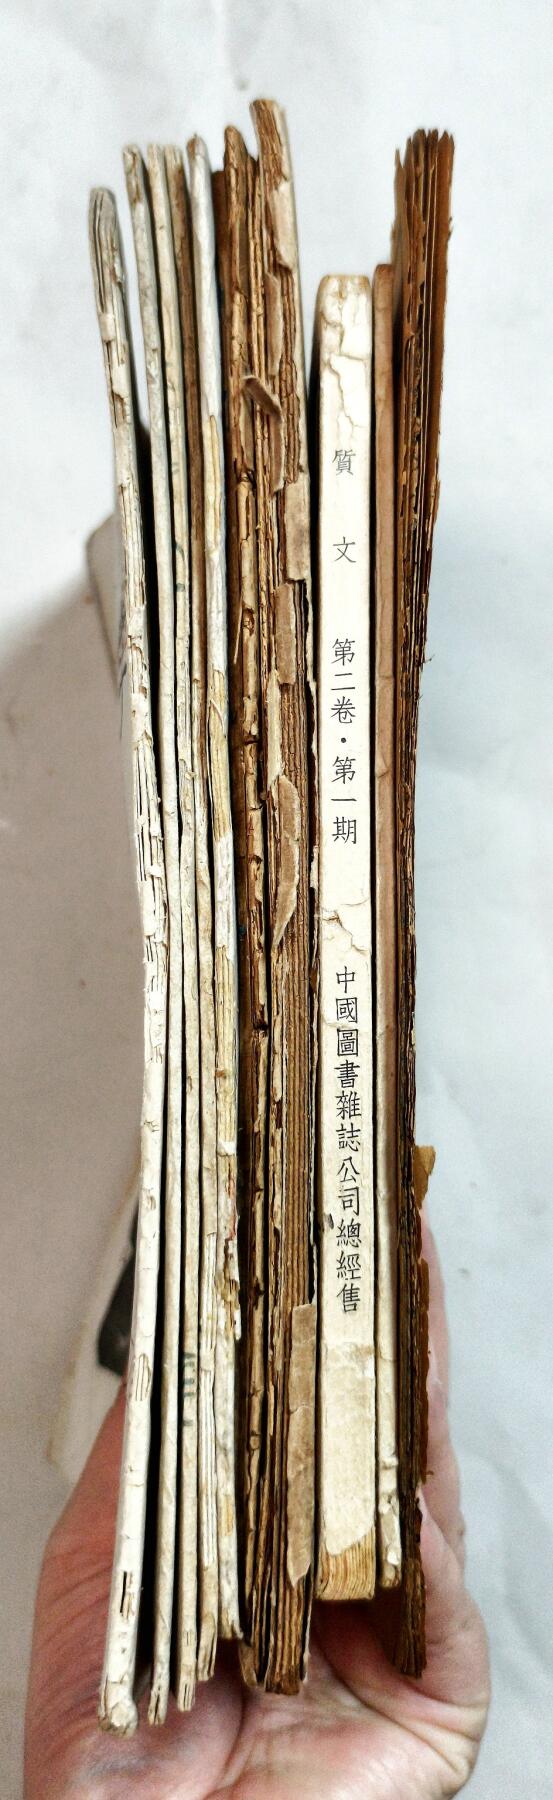 質文 第二卷·第一期 中國圖書雜誌公司總經售